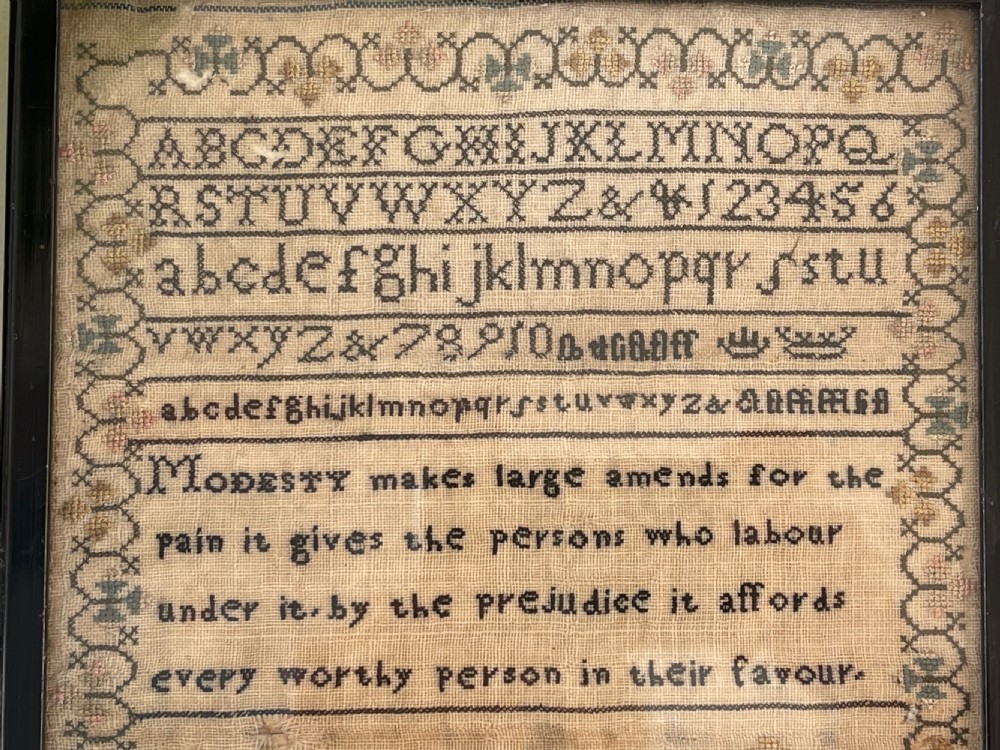 ABCDEFGHIJKLMNOPQ
RSTUVWXYZ&123456
abcdefghijklmnopqrſstu
vwxyz&78910
abcdefghijklmnopqrſstuvwxyz&
MODESTY makes large amends for the
pain it gives the persons who labour
under it. by the prejudice it affords
every worthy person in their favour.